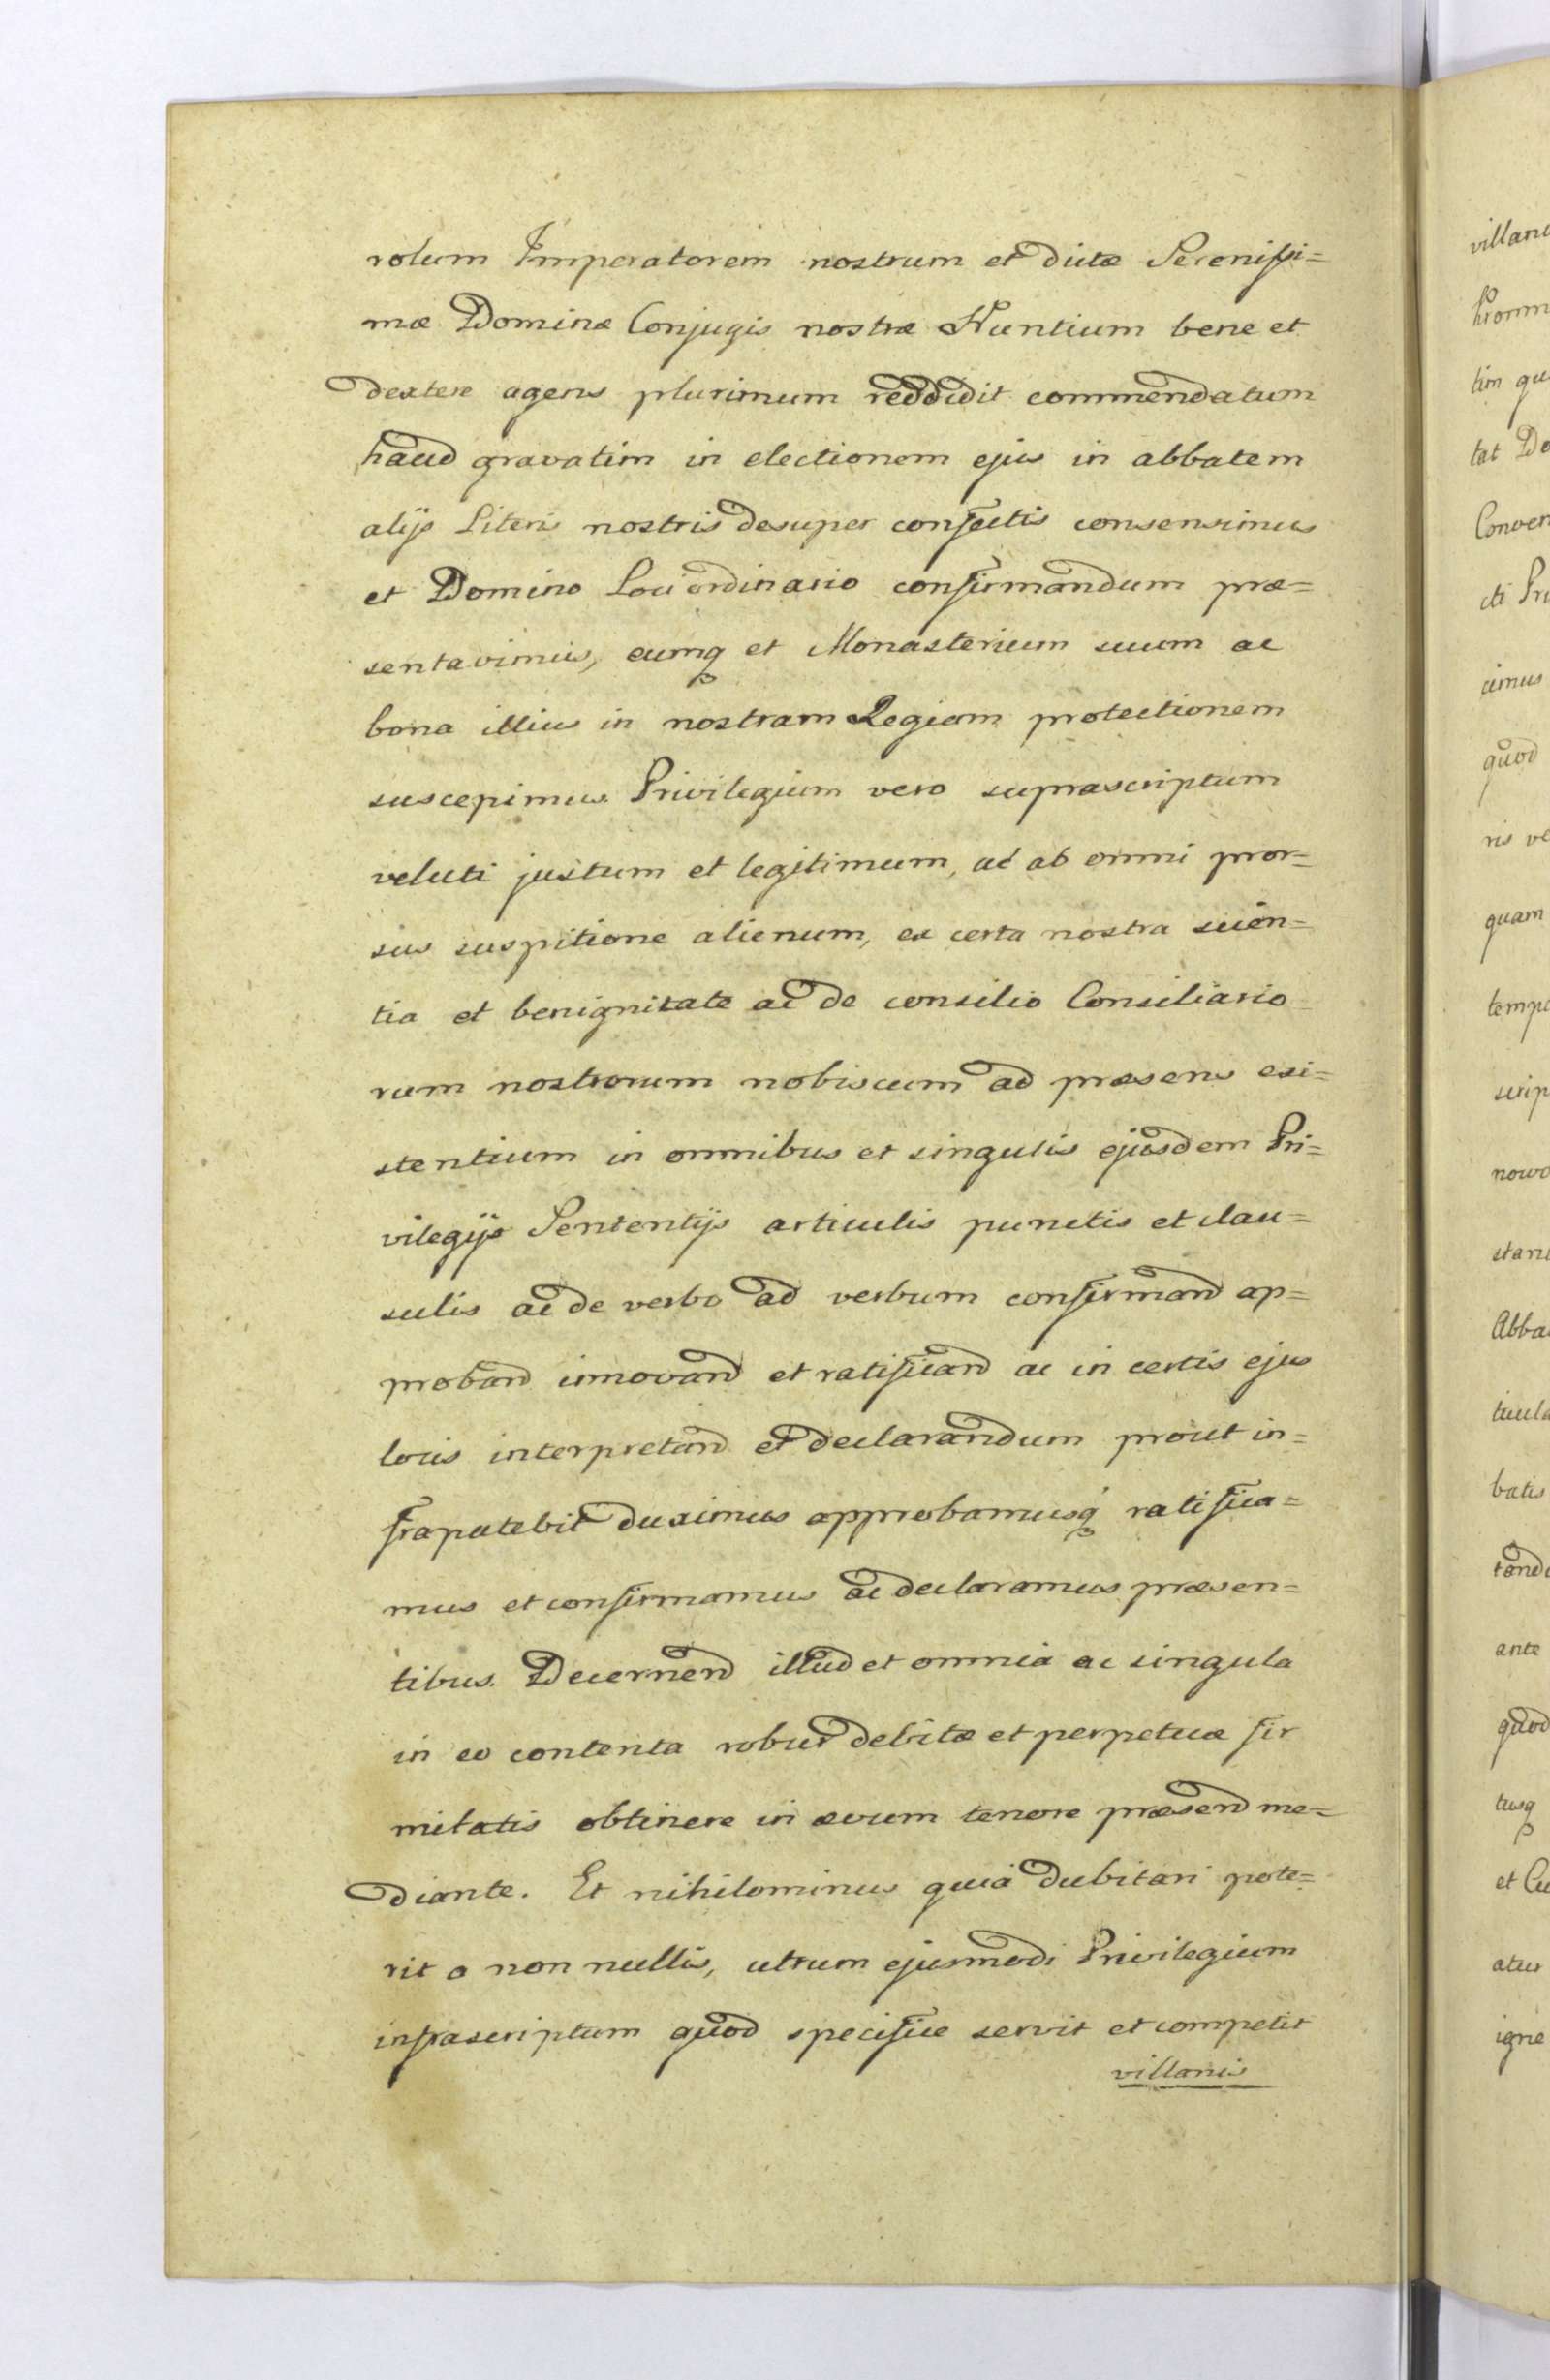 rolum Imperatorem nostrum et dictæ Serenissi=
mæ Dominæ Conjugis nostræ Nuntium bene et
dextere agens plurimum reddidit commendatum
haud gravatim in electionem ejus in abbatem
alijs Literis nostris desuper confectis consensimus
et Domino Loci ordinario confirmandum præ=
sentavimus, eumq et Monasterium suum ac
bona illius in nostram Regiam protectionem
suscepimus. Privilegium vero suprascriptum
veluti justum et legitimum, ac ab omni pror=
sus suspitione alienum, ex certa nostra scien=
tia et benignitate ac de consilio Consiliario
rum nostrorum nobiscum ad præsens exi=
stentium in omnibus et singulis ejusdem Pri=
vilegijs Sententijs articulis punctis et clau=
sulis ac de verbo ad verbum confirmand ap=
proband innovand et ratificand ac in certis ejus
locis interpretand et declarandum prout in=
frapatebit duximus approbamusq ratifica=
mus et confirmamus ac declaramus præsen=
tibus. Decernend illud et omnia ac singula
in eo contenta robur debitæ et perpetuæ fir
mitatis obtinere in ævum tenore præsend me=
diante. Et nihilominus quia dubitari pote=
rit a non nullis, utrum ejusmodi Privilegium
infrascriptum quod specifice servit et competit
villanis
villan
Promm
tim qu
tat Do
Conven
cti Pri
cimus
quod
ris ve
quam
temp
scrip
novo
stan
Abba
ticula
batis
tand
ante
quod
tusq
et Cu
atur
igne